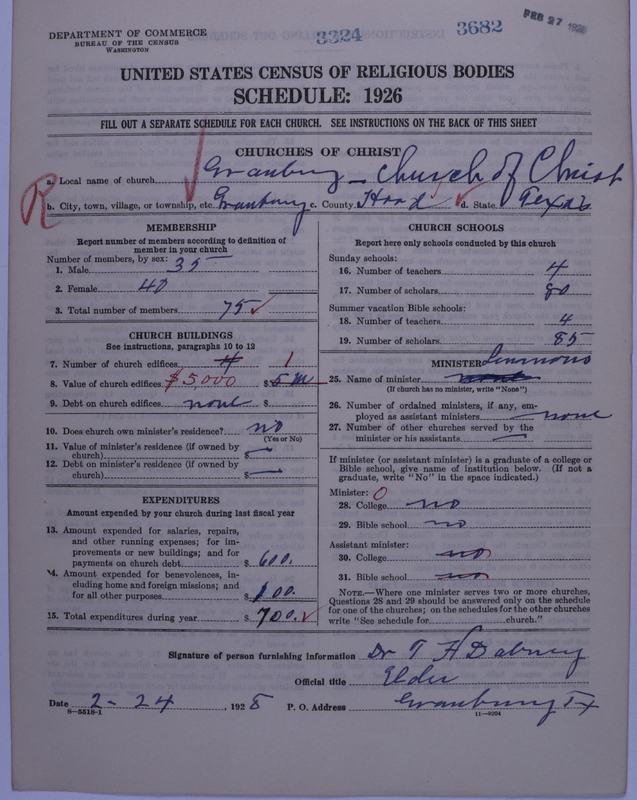 DEPARTMENT OF COMMERCE
BUREAU OF THE CENSUS
WASHINGTON
3324
3682
FEB 27 1928
UNITED STATES CENSUS OF RELIGIOUS BODIES
SCHEDULE: 1926
FILL OUT A SEPARATE SCHEDULE FOR EACH CHURCH. SEE INSTRUCTIONS ON THE BACK OF THIS SHEET
CHURCHES OF CHRIST
R
a. Local name of church Granbury - Church of Christ
b. City, town, village, or township, etc. Granbury c. County Hood d. State Texas
MEMBERSHIP
Report number of members according to definition of
member in your church
Number of members, by sex:
1. Male 35
2. Female 40
3. Total number of members 75
CHURCH BUILDINGS
See instructions, paragraphs 10 to 12
7. Number of church edifices 1
8. Value of church edifices $5,000 $5 M
9. Debt on church edifices none $
10. Does church own minister's residence? no
(Yes or No)
11. Value of minister's residence (if owned by
church) $ —
12. Debt on minister's residence (if owned by
church) $ —
EXPENDITURES
Amount expended by your church during last fiscal year
13. Amount expended for salaries, repairs,
and other running expenses; for im-
provements or new buildings; and for
payments on church debt $ 600.
14. Amount expended for benevolences, in-
cluding home and foreign missions; and
for all other purposes $ 100.
15. Total expenditures during year $ 700.
CHURCH SCHOOLS
Report here only schools conducted by this church
Sunday schools:
16. Number of teachers 4
17. Number of scholars 80
Summer vacation Bible schools:
18. Number of teachers 4
19. Number of scholars 85
MINISTER Simmons
25. Name of minister none
(If church has no minister, write "None")
26. Number of ordained ministers, if any, em-
ployed as assistant ministers none
27. Number of other churches served by the
minister or his assistants —
If minister (or assistant minister) is a graduate of a college or
Bible school, give name of institution below. (If not a
graduate, write "No" in the space indicated.)
Minister: 0
28. College no
29. Bible school no
Assistant minister:
30. College no
31. Bible school no
NOTE.—Where one minister serves two or more churches,
Questions 28 and 29 should be answered only on the schedule
for one of the churches; on the schedules for the other churches
write "See schedule for church."
Signature of person furnishing information Dr T H Dabney
Official title Elder
Date 2 - 24, 1928 P. O. Address Granbury Tx
8—5518-1
11—9204